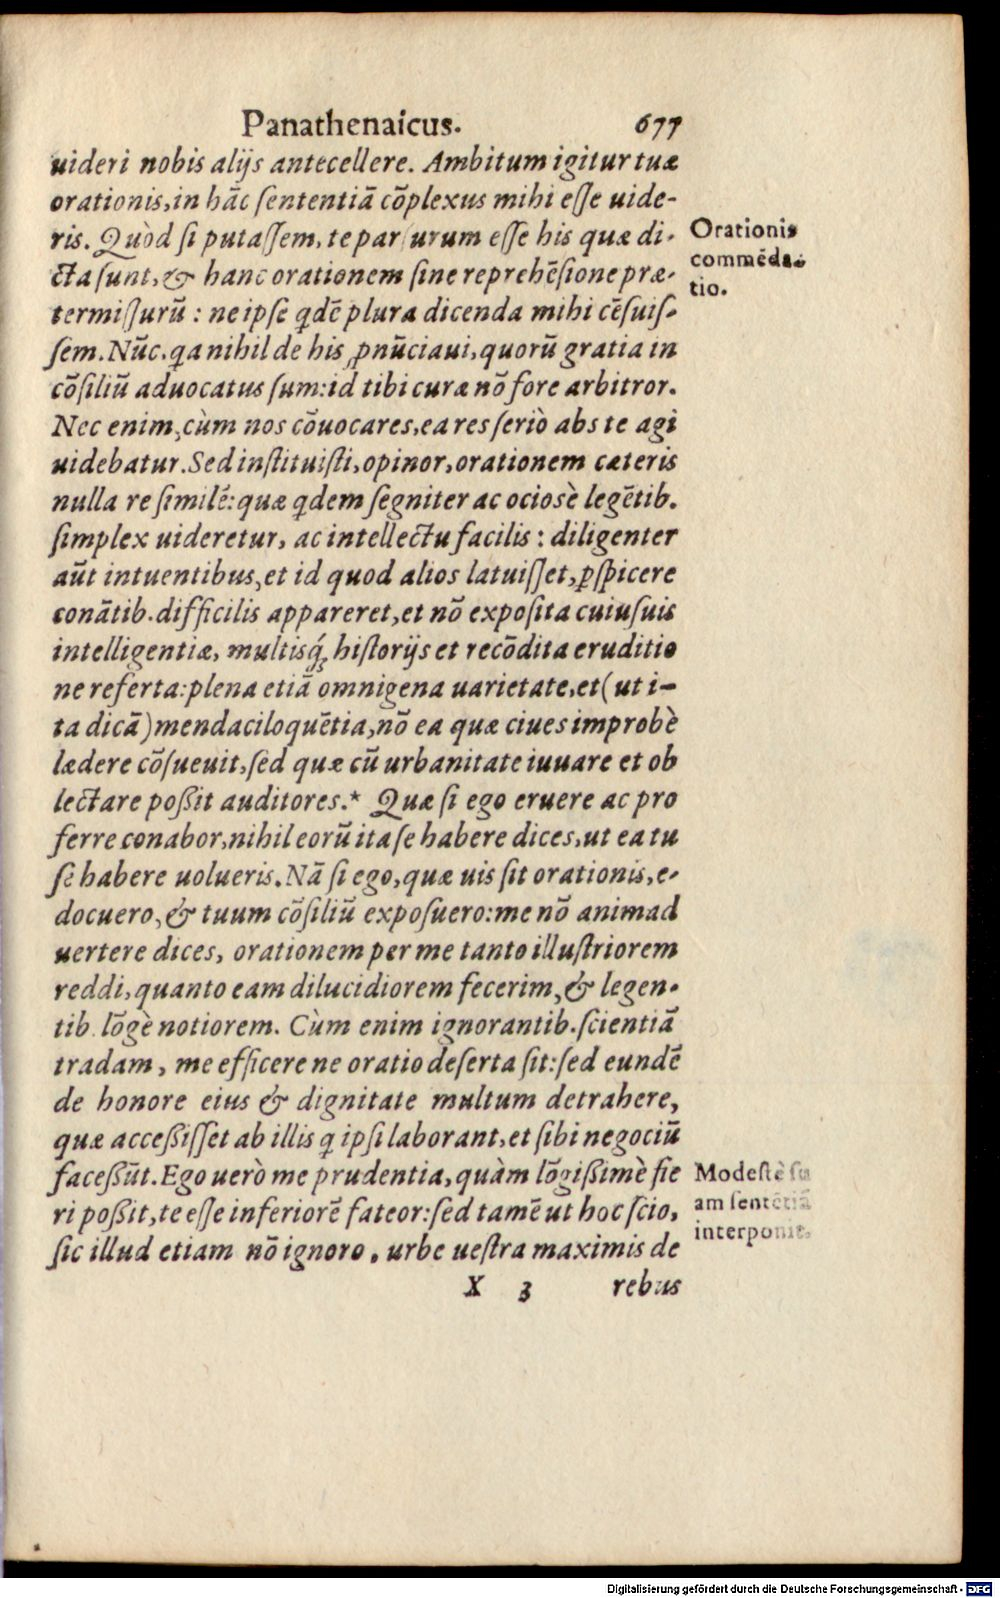 Panathenaicus. 677
uideri nobis alijs antecellere. Ambitum igitur tuæ
orationis, in hāc ſententiā cōplexus mihi eſſe uide-
ris. Quòd ſi putaſſem, te parſurum eſſe his quæ di-
cta ſunt, & hanc orationem ſine reprehēſione præ-
termiſſurū: ne ipſe qdē plura dicenda mihi cēſuiſ-
ſem. Nūc, qa nihil de his ꝓnūciaui, quorū gratia in
cōſiliū aduocatus ſum: id tibi curæ nō fore arbitror.
Nec enim, cùm nos cōuocares, ea res ſeriò abs te agi
uidebatur. Sed inſtituiſti, opinor, orationem cæteris
nulla re ſimilē: quæ qdem ſegniter ac ociosè legētib.
ſimplex uideretur, ac intellectu facilis: diligenter
aūt intuentibus, et id quod alios latuiſſet, ꝑſpicere
conātib. difficilis appareret, et nō expoſita cuiuſuis
intelligentiæ, multisq́; hiſtorijs et recōdita eruditio
ne referta: plena etiā omnigena uarietate, et (ut i-
ta dicā) mendaciloquētia, nō ea quæ ciues improbè
lædere cōſueuit, ſed quæ cū urbanitate iuuare et ob
lectare poßit auditores.* Quæ ſi ego eruere ac pro
ferre conabor, nihil eorū ita ſe habere dices, ut ea tu
ſe habere uolueris. Nā ſi ego, quæ uis ſit orationis, e-
docuero, & tuum cōſiliū expoſuero: me nō animad
uertere dices, orationem per me tanto illuſtriorem
reddi, quanto eam dilucidiorem fecerim, & legen-
tib. lōgè notiorem. Cùm enim ignorantib. ſcientiā
tradam, me efficere ne oratio deſerta ſit: ſed eundē
de honore eius & dignitate multum detrahere,
quæ acceßiſſet ab illis q ipſi laborant, et ſibi negociū
faceßūt. Ego uerò me prudentia, quàm lōgißimè fie
ri poßit, te eſſe inferiorē fateor: ſed tamē ut hoc ſcio,
ſic illud etiam nō ignoro, urbe ueſtra maximis de
X 3 rebus
Orationis
commēda-
tio.
Modeſtè ſu
am ſentētiā
interponit.
Digitalisierung gefördert durch die Deutsche Forschungsgemeinschaft - DFG